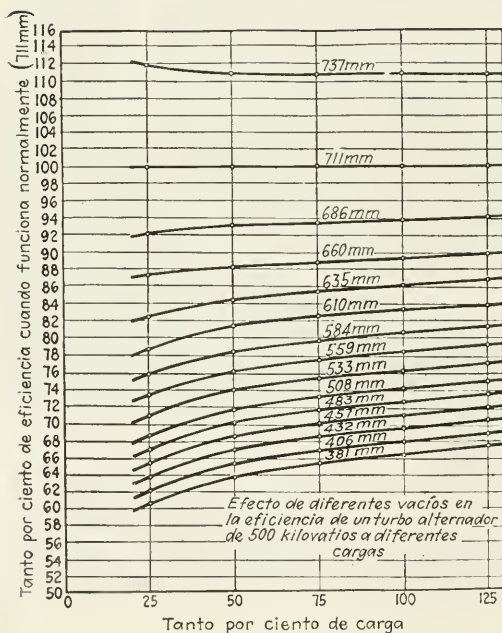 Tanto por ciento de eficiencia cuando funciona normalmente (711mm)
116
114
112
110
108
106
104
102
100
98
96
94
92
90
88
86
84
82
80
78
76
74
72
70
68
66
64
62
60
58
56
54
52
50
737mm
711mm
686mm
660mm
635mm
610mm
584mm
559mm
533mm
508mm
483mm
457mm
432mm
406mm
381mm
Efecto de diferentes vacíos en
la eficiencia de un turbo alternador
de 500 kilovatios a diferentes
cargas
0 25 50 75 100 125
Tanto por ciento de carga